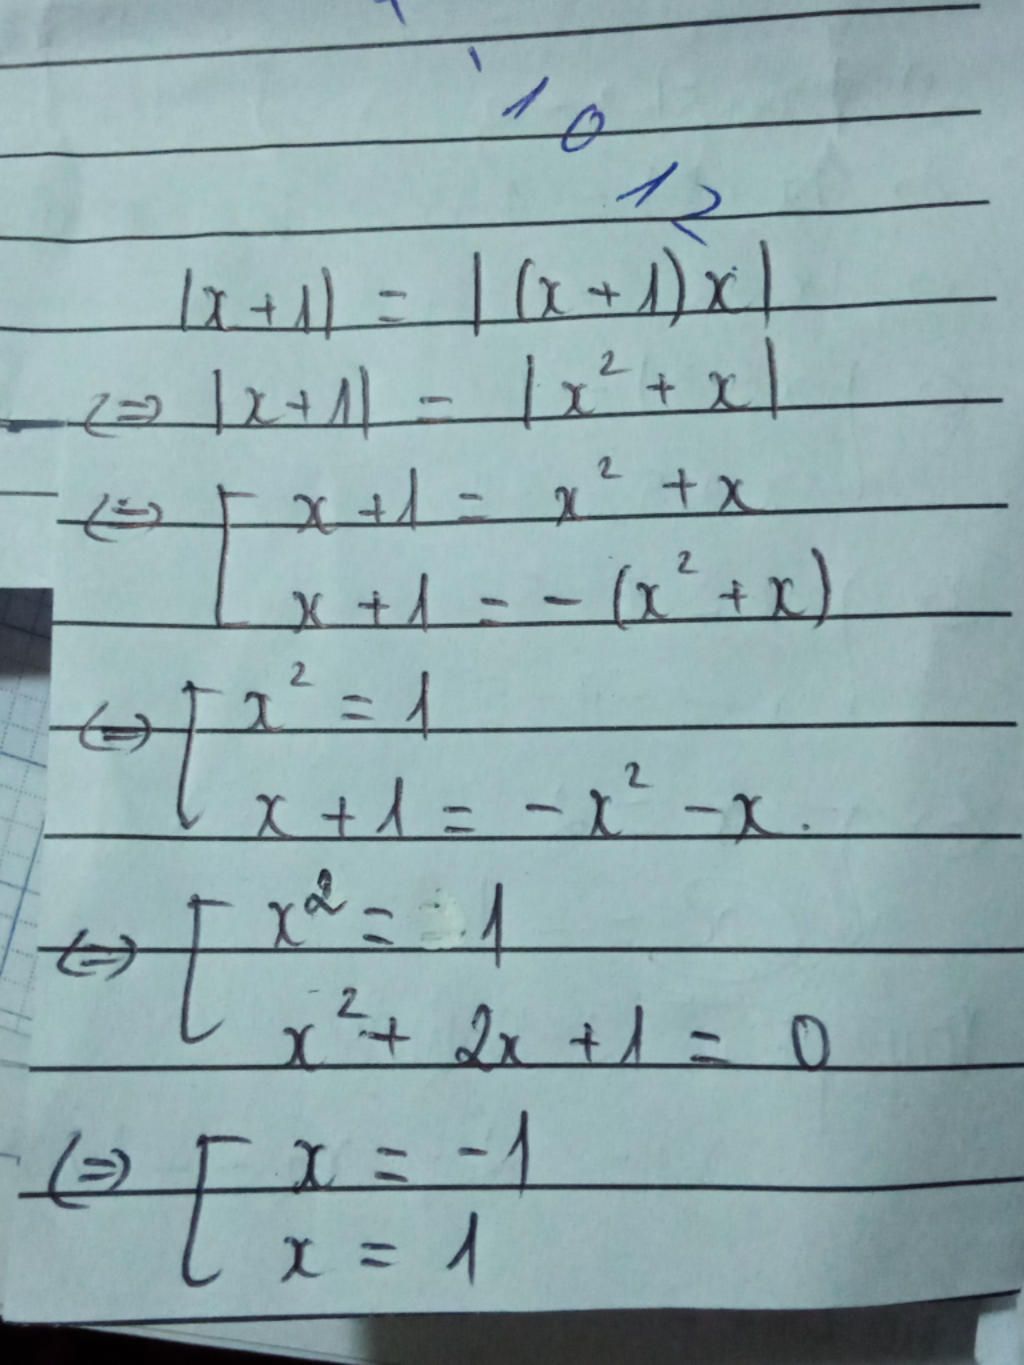 1
0
12
|x+1| = |(x+1)x|
⇔ |x+1| = |x² + x|
⇔ [ x+1 = x² + x
x+1 = -(x² + x)
⇔ [ x² = 1
x+1 = -x² - x.
⇔ [ x² = 1
x² + 2x + 1 = 0
⇔ [ x = -1
x = 1